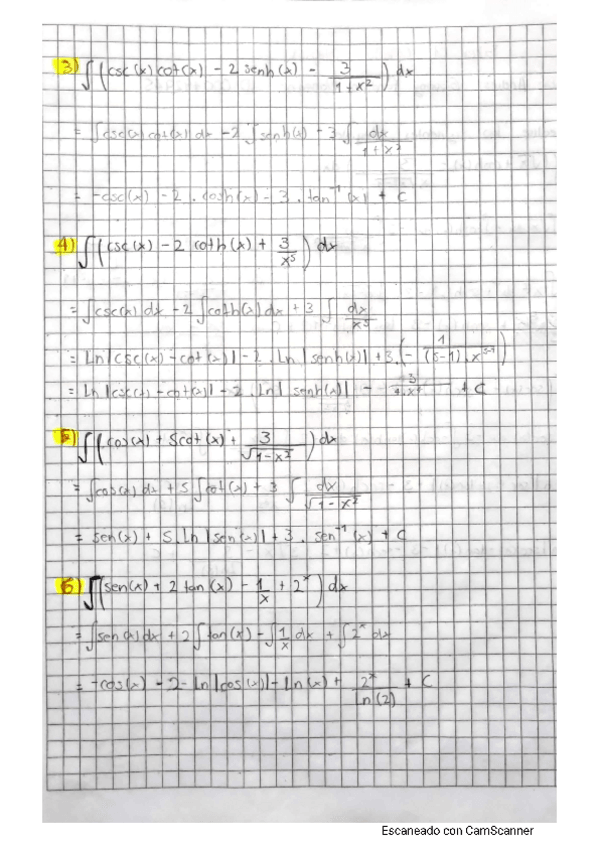 3) ∫(csc(x)cot(x) - 2 senh(x) - 3/(1+x²)) dx
= ∫csc(x)cot(x) dx - 2∫senh(x) - 3∫dx/(1+x²)
= -csc(x) - 2 . cosh(x) - 3 . tan⁻¹(x) + C
4) ∫(csc(x) - 2 coth(x) + 3/x⁵) dx
= ∫csc(x) dx - 2∫coth(x) dx + 3∫dx/x⁵
= Ln|csc(x) - cot(x)| - 2 . Ln|senh(x)| + 3.(- 1/((5-1).x⁵⁻¹))
= Ln|csc(x) - cot(x)| - 2 . Ln|senh(x)| - 3/(4.x⁴) + C
5) ∫(cos(x) + 5cot(x) + 3/√(1-x²)) dx
= ∫cos(x) dx + 5∫cot(x) + 3∫dx/√(1-x²)
= sen(x) + 5.Ln|sen(x)| + 3 . sen⁻¹(x) + C
6) ∫(sen(x) + 2 tan(x) - 1/x + 2ˣ) dx
= ∫sen(x) dx + 2∫tan(x) - ∫1/x dx + ∫2ˣ dx
= -cos(x) - 2 - Ln|cos(x)| - Ln(x) + 2ˣ/ln(2) + C
Escaneado con CamScanner